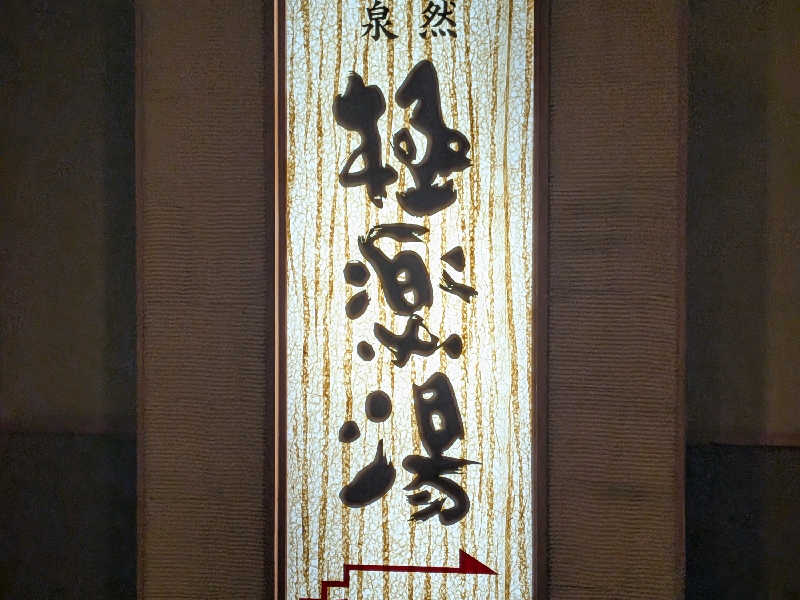 然
泉
極楽湯